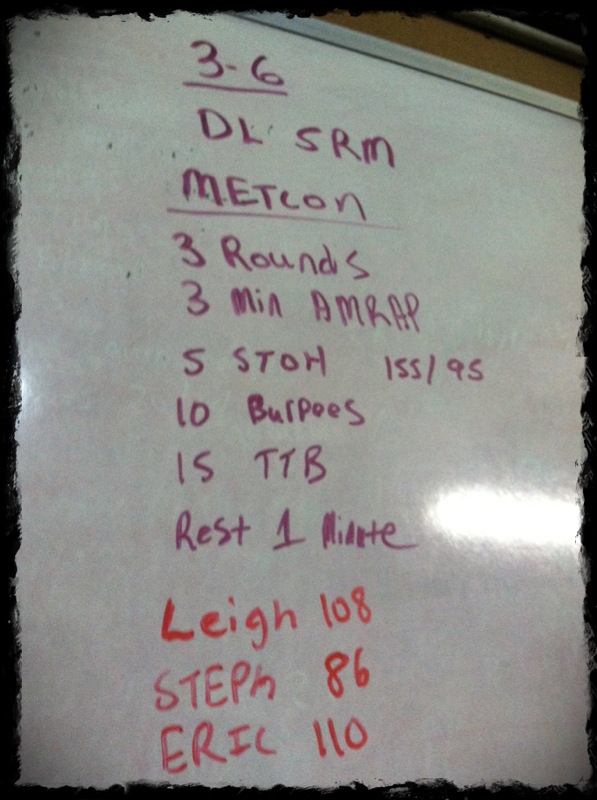 3-6
DL 5RM
METCON
3 Rounds
3 Min AMRAP
5 STOH 155/95
10 Burpees
15 TTB
Rest 1 Minute
Leigh 108
STEPh 86
ERIC 110